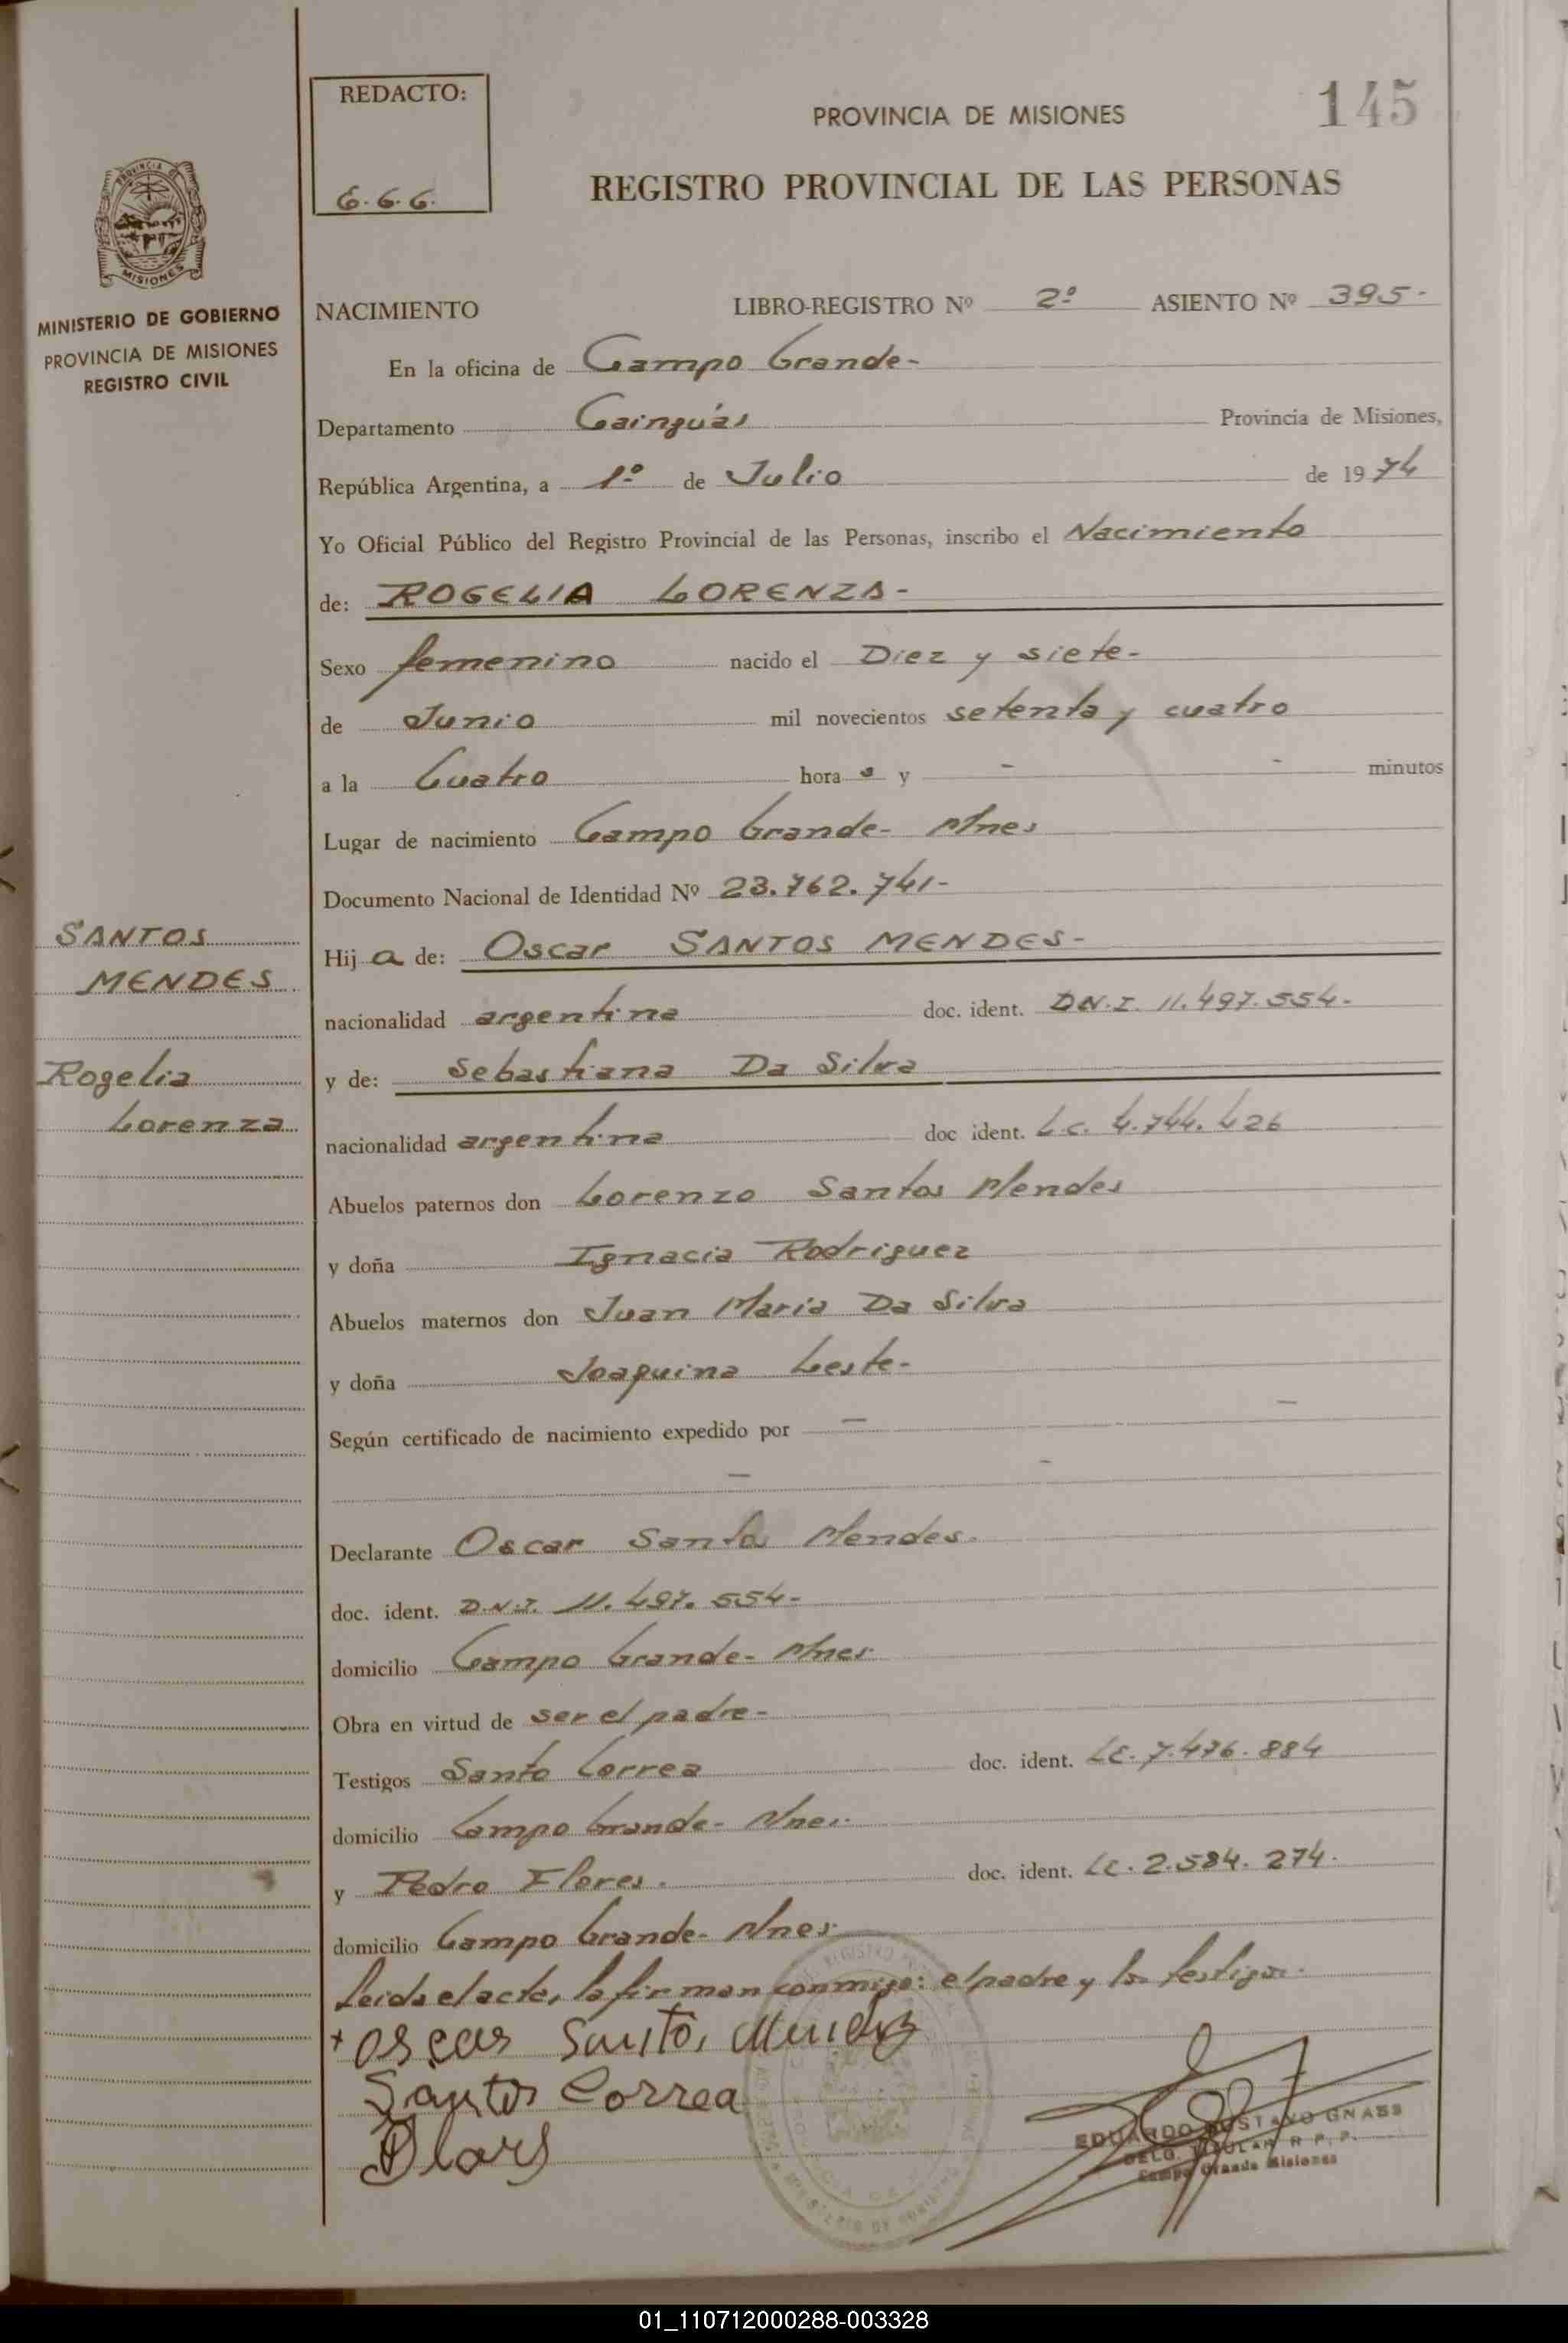 145
REDACTO:
E.G.G.
PROVINCIA DE MISIONES
REGISTRO PROVINCIAL DE LAS PERSONAS
PROVINCIA DE
MISIONES
MINISTERIO DE GOBIERNO
PROVINCIA DE MISIONES
REGISTRO CIVIL
NACIMIENTO LIBRO-REGISTRO Nº 2º ASIENTO Nº 395-
En la oficina de Campo Grande-
Departamento Cainguás Provincia de Misiones,
República Argentina, a 1º de Julio de 1974
Yo Oficial Público del Registro Provincial de las Personas, inscribo el Nacimiento
de: ROGELIA LORENZA-
Sexo femenino nacido el Diez y siete-
de Junio mil novecientos setenta y cuatro
a la Cuatro hora s y - - minutos
Lugar de nacimiento Campo Grande- Mnes
Documento Nacional de Identidad Nº 23.762.741-
SANTOS
MENDES
Rogelia
Lorenza
Hij a de: Oscar SANTOS MENDES-
nacionalidad argentina doc. ident. D.N.I. 11.497.554-
y de: Sebastiana Da Silva
nacionalidad argentina doc ident. L.C. 4.744.426
Abuelos paternos don Lorenzo Santos Mendes
y doña Ignacia Rodriguez
Abuelos maternos don Juan Maria Da Silva
y doña Joaquina Leste-
Según certificado de nacimiento expedido por - -
- -
Declarante Oscar Santos Mendes.
doc. ident. D.N.I. 11.497.554-
domicilio Campo Grande- Mnes
Obra en virtud de ser el padre-
Testigos Santo Correa doc. ident. LE. 7.476.884
domicilio Campo Grande- Mnes.
y Pedro Flores. doc. ident. LE. 2.584.274.
domicilio Campo Grande- Mnes
Leida el acta, la firman conmigo: el padre y los testigos.
+ oscar Santos Mendes
Santos Correa
EDUARDO GUSTAVO GNASS
DELG. TITULAR R P. P.
Campo Grande Misiones
01_110712000288-003328